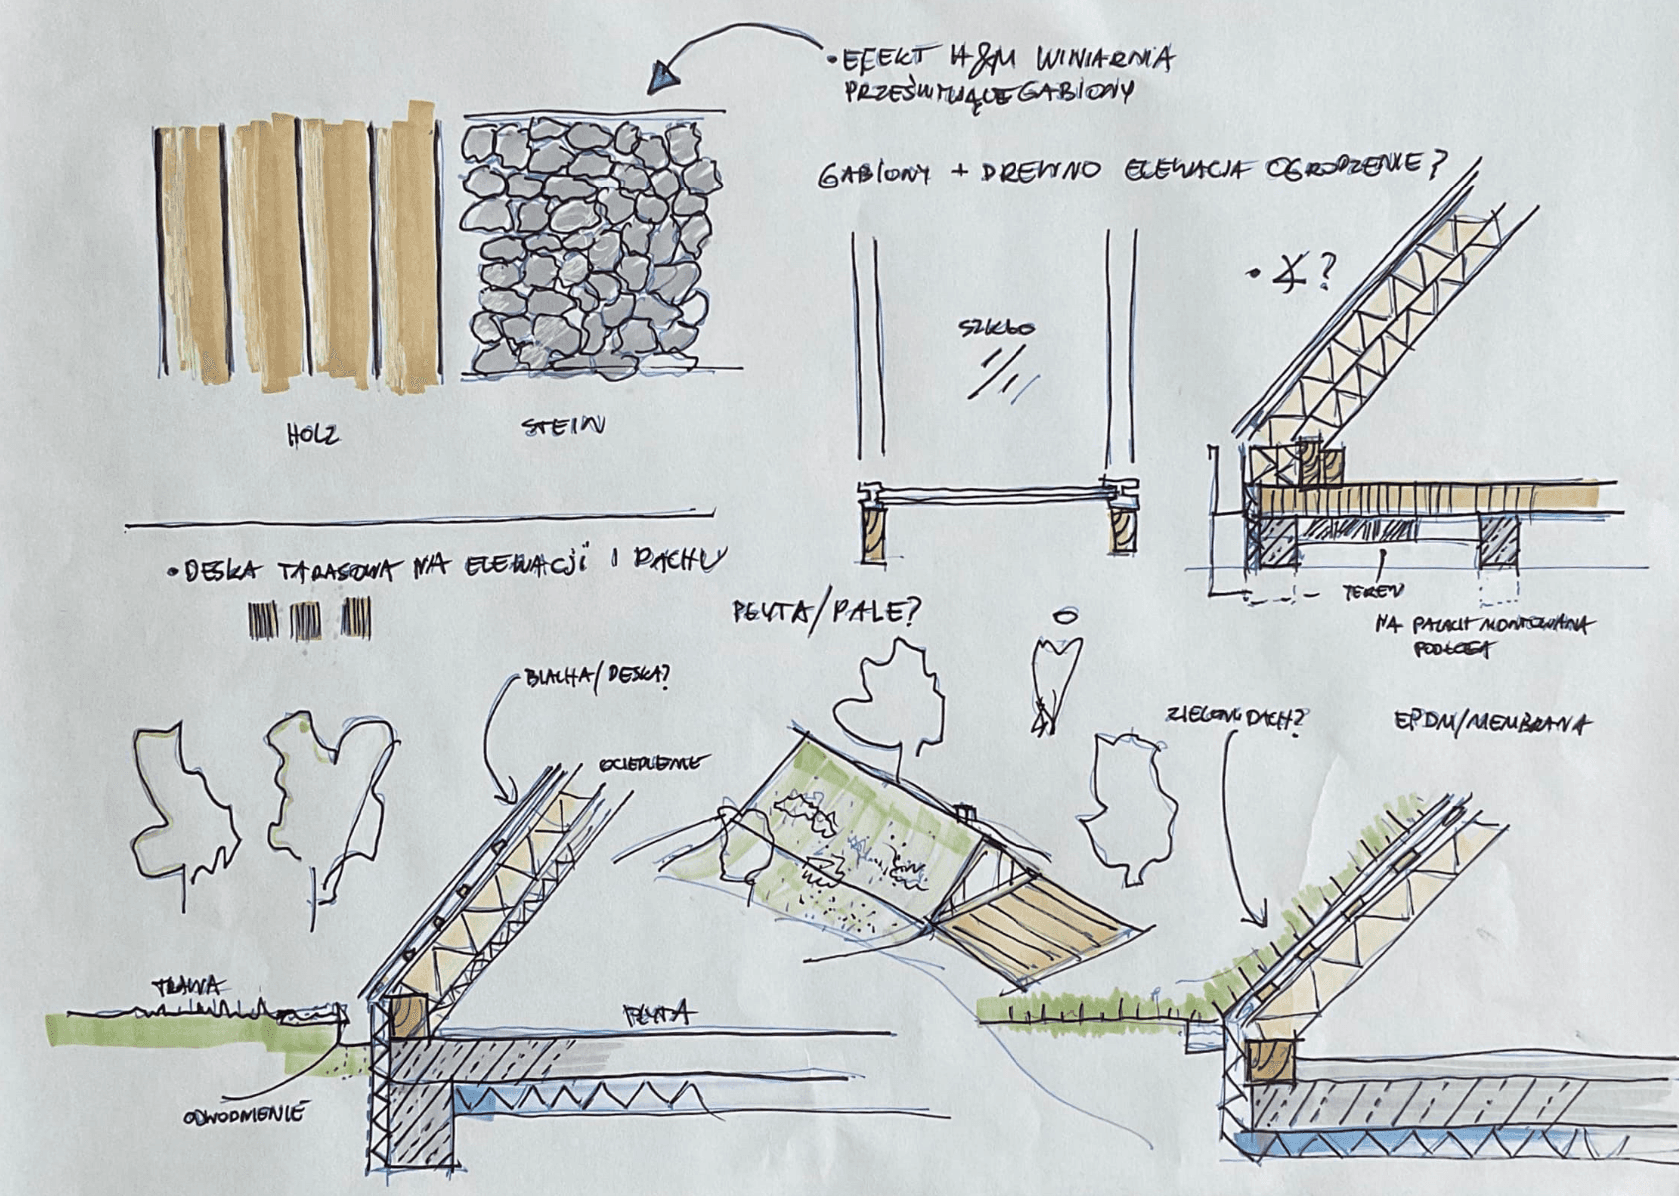 • EFEKT H&M WINIARNIA
PRZEŚWITUJĄCE GABIONY
GABIONY + DREWNO ELEWACJA OGRODZENIE?
• X?
SZKŁO
HOLZ
STEIN
• DESKA TARASOWA NA ELEWACJI I DACHU
TEREN
NA PALACH MONTOWANA
PODŁOGA
PŁYTA/PALE?
BLACHA/DESKA?
OCIEPLENIE
ZIELONY DACH?
EPDM/MEMBRANA
TRAWA
PŁYTA
ODWODNIENIE